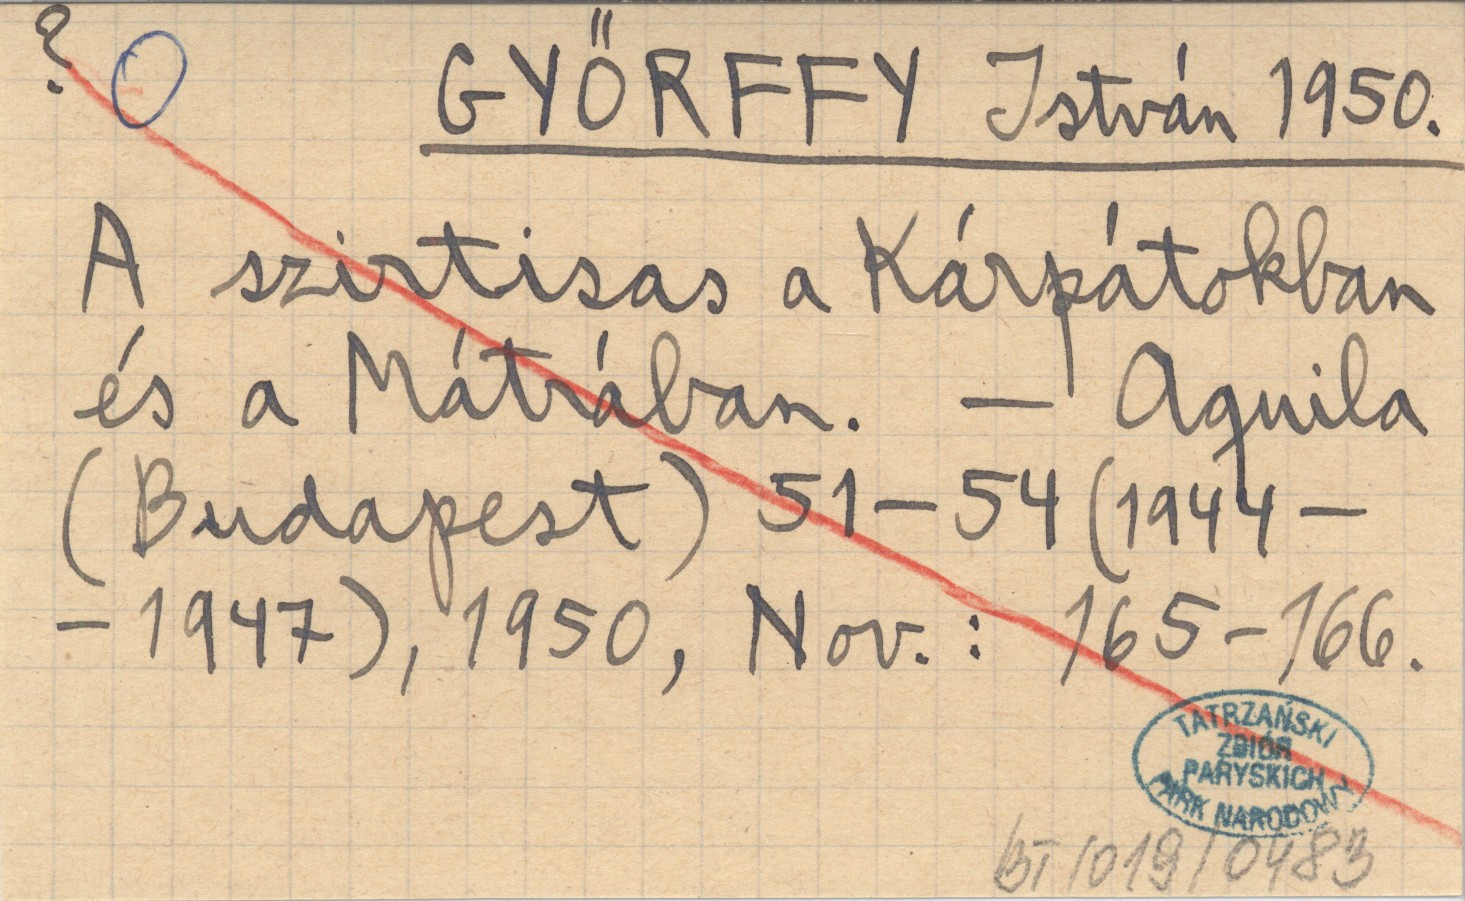 ? O GYŐRFFY István 1950.
A szirtisas a Kárpátokban
és a Mátrában. — Aquila
(Budapest) 51—54 (1944 —
– 1947), 1950, Nov. : 165–166.
TATRZAŃSKI
ZBIÓR
PARYSKICH
PARK NARODOWY
BT/019/0483